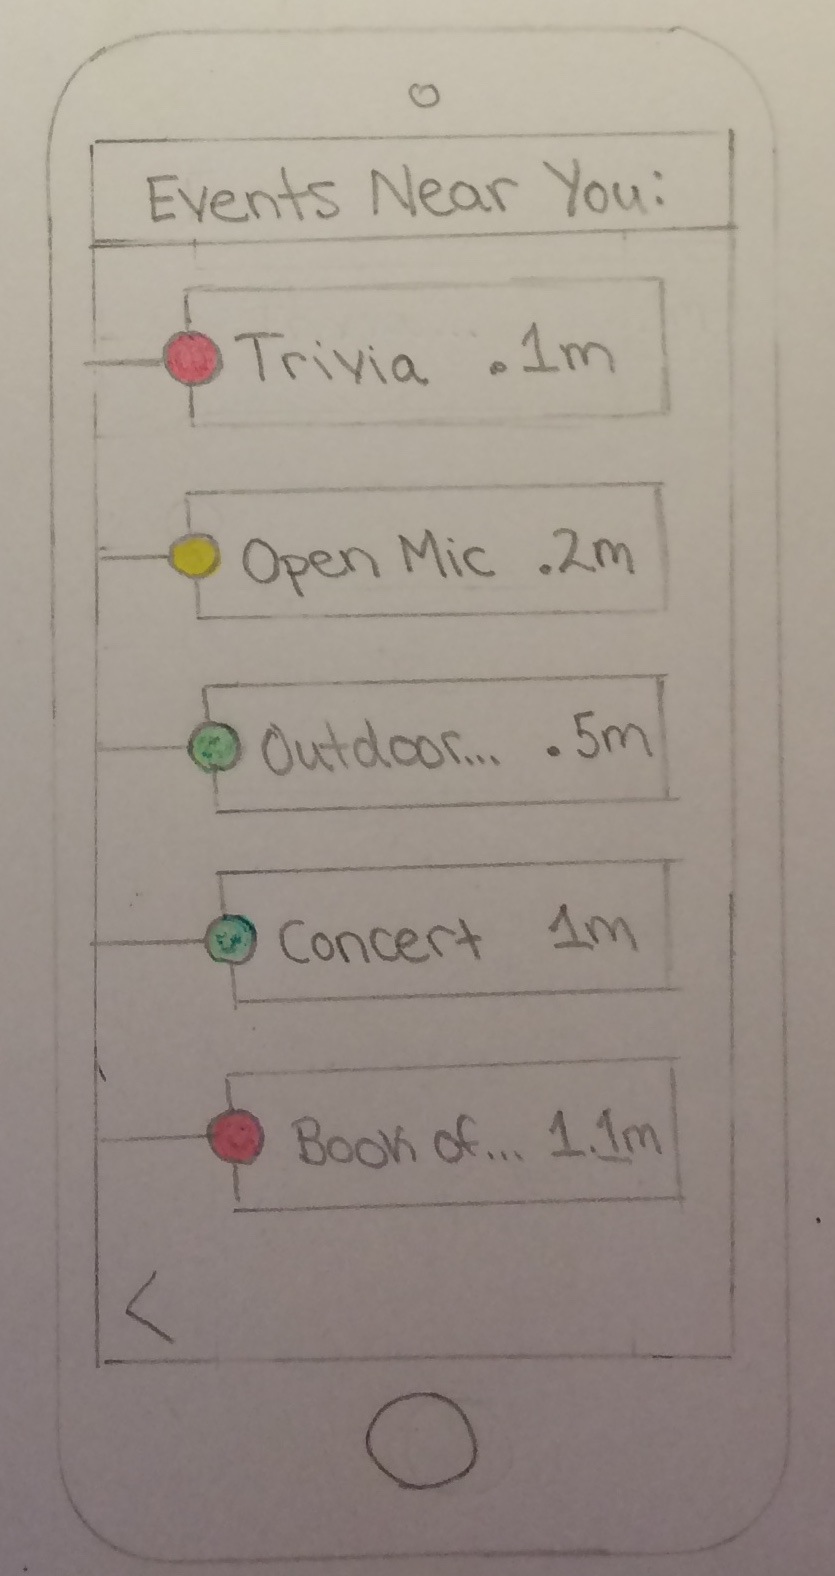 Events Near You:
Trivia .1m
Open Mic .2m
Outdoor... .5m
Concert 1m
Book of... 1.1m
<